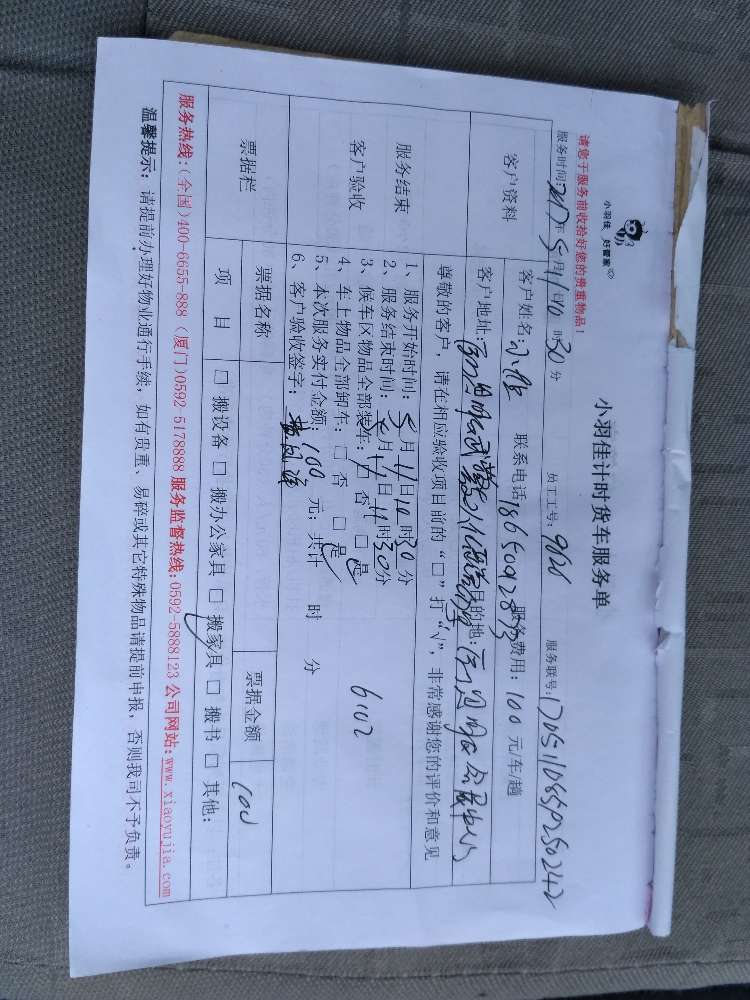 小羽佳 好管家
小羽佳计时货车服务单
请您于服务前收拾好您的贵重物品！
服务时间:2017年5月11日10时30分 员工工号: 服务联号:
客户资料
客户姓名: 联系电话 服务费用:100元/车/趟
客户地址: 目的地:
尊敬的客户，请在相应验收项目前的“□”打“√”，非常感谢您的评价和意见
服务结束
客户验收
1、服务开始时间:5月11日10时30分
2、服务结束时间:5月11日11时30分
3、候车区物品全部装车:□否 □是
4、车上物品全部卸车:□否 □是
5、本次服务实付金额:100元；共计 时 分
6、客户验收签字:
6102
票据栏
票据名称 票据金额 100
项目 □搬设备 □搬办公家具 □搬家具 □搬书 □其他:
服务热线:(全国)400-6655-888 (厦门)0592-5178888 服务监督热线:0592-5888123 公司网站:www.xiaoyujia.com
温馨提示: 请提前办理好物业通行手续，如有贵重、易碎或其它特殊物品请提前申报，否则我司不予负责。